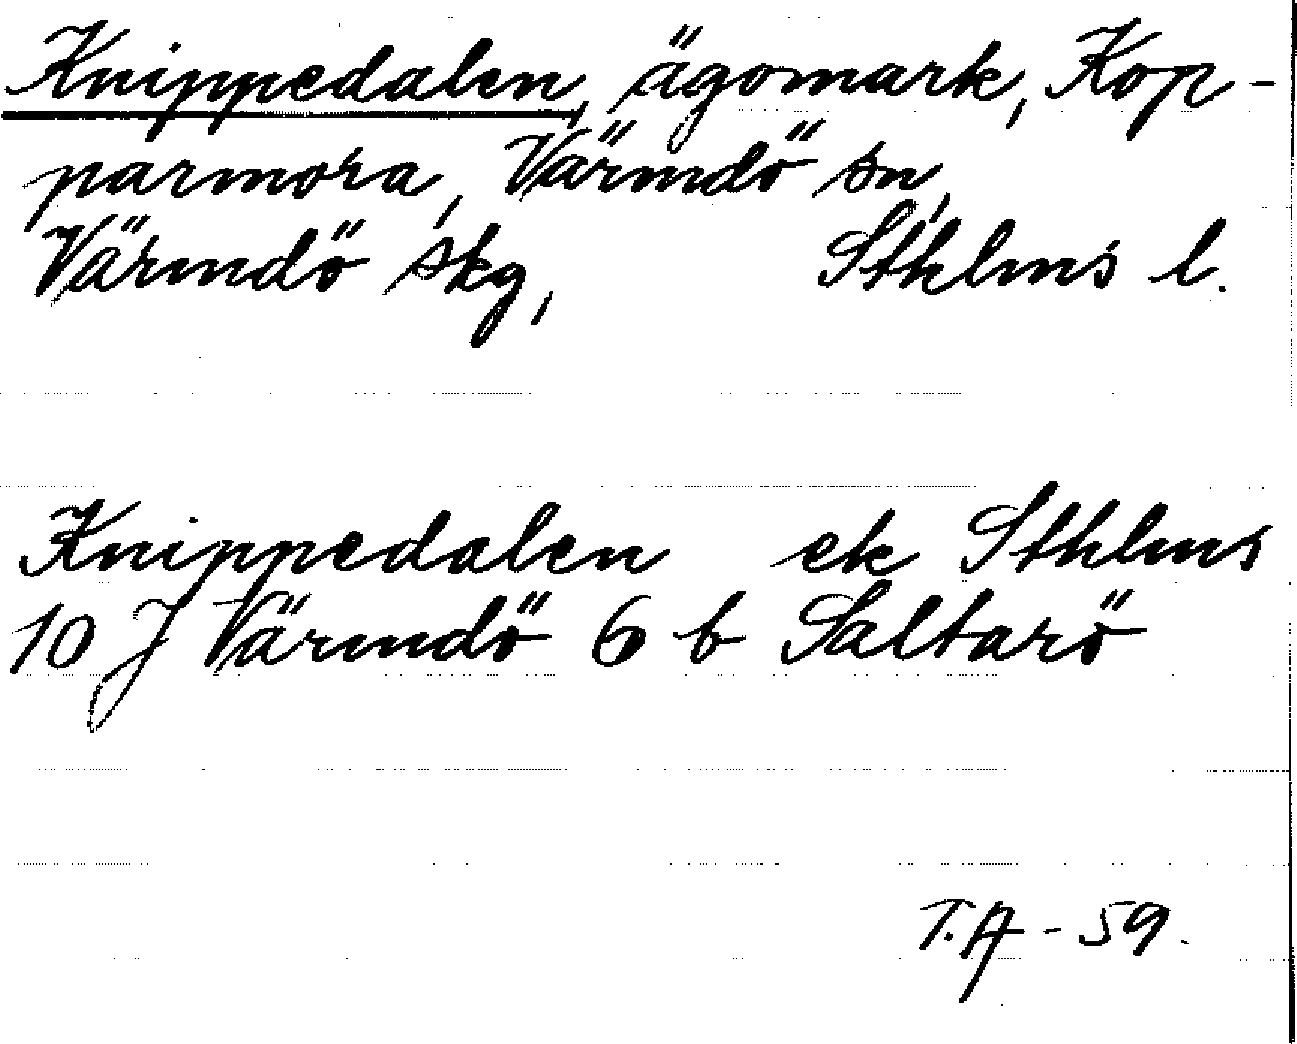 Knippedalen, ägomark, Kop-
parmora, Värmdö sn,
Värmdö skg, Sthlms l.
Knippedalen ek Sthlms
10 J Värmdö 6 b Saltarö
T.A - 59.